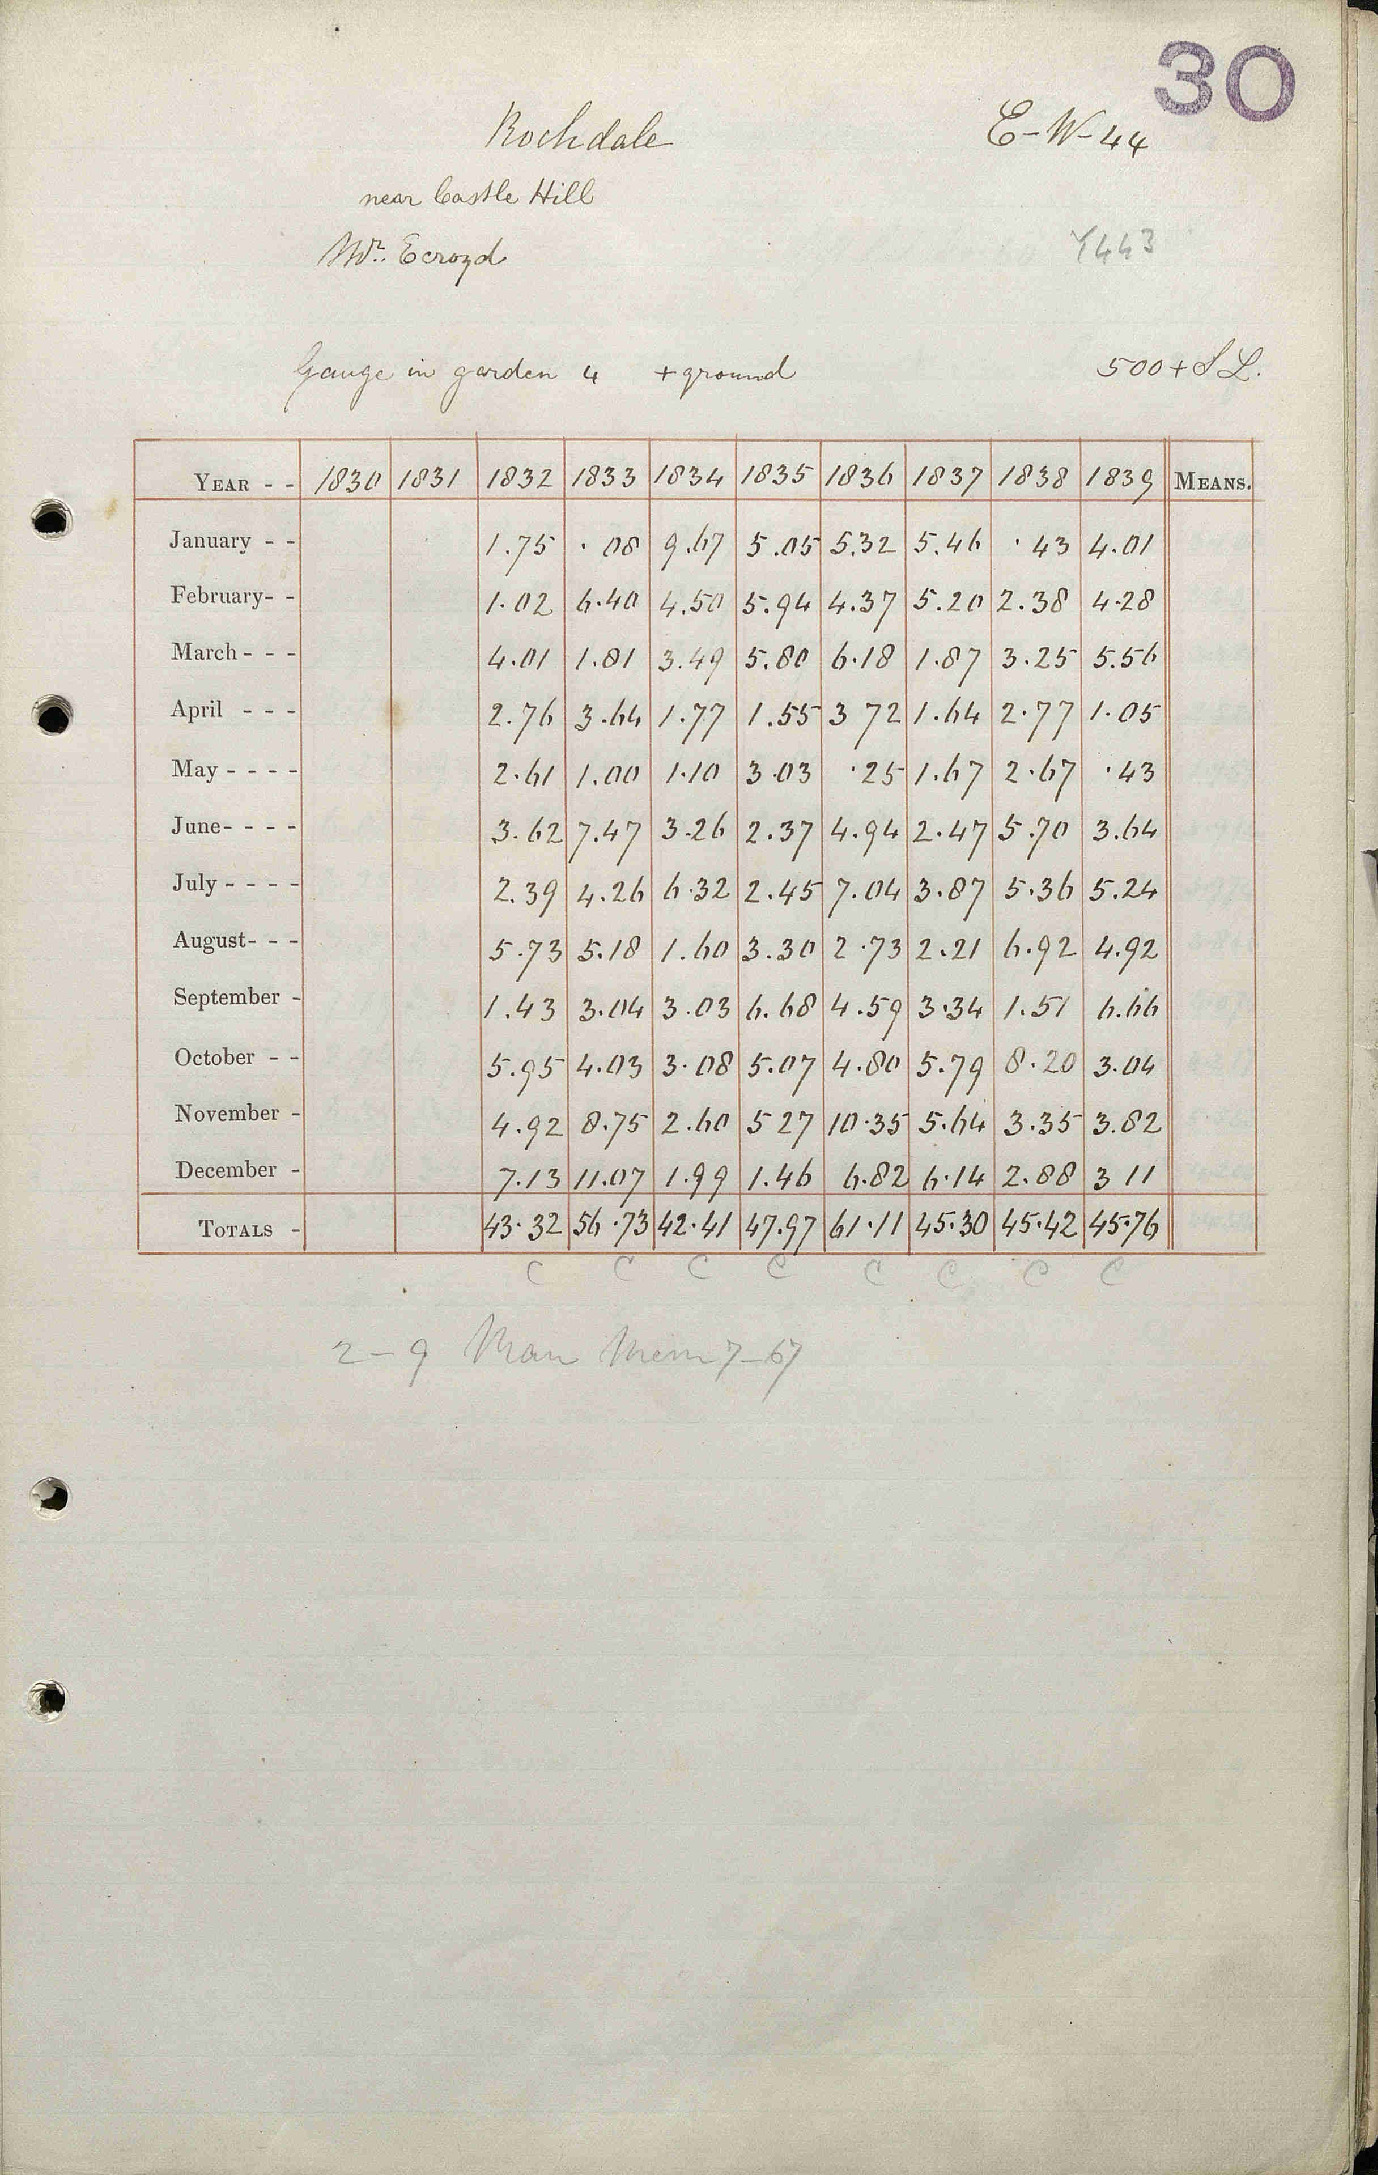 30
Rochdale E-W-44
near Castle Hill
Mr. Ecroyd Y443
Gauge in garden 4 + ground 500 + S L.
YEAR - - 1830 1831 1832 1833 1834 1835 1836 1837 1838 1839 MEANS.
January - - 1.75 .08 9.67 5.05 5.32 5.46 .43 4.01
February- - 1.02 6.40 4.50 5.94 4.37 5.20 2.38 4.28
March - - - 4.01 1.81 3.49 5.80 6.18 1.87 3.25 5.56
April - - - 2.76 3.64 1.77 1.55 3 72 1.64 2.77 1.05
May - - - - 2.61 1.00 1.10 3.03 .25 1.67 2.67 .43
June- - - - 3.62 7.47 3.26 2.37 4.94 2.47 5.70 3.64
July - - - - 2.39 4.26 6.32 2.45 7.04 3.87 5.36 5.24
August- - - 5.73 5.18 1.60 3.30 2.73 2.21 6.92 4.92
September - 1.43 3.04 3.03 6.68 4.59 3.34 1.51 6.66
October - - 5.95 4.03 3.08 5.07 4.80 5.79 8.20 3.04
November - 4.92 8.75 2.60 5 27 10.35 5.64 3.35 3.82
December - 7.13 11.07 1.99 1.46 6.82 6.14 2.88 3 11
TOTALS - 43.32 56.73 42.41 47.97 61.11 45.30 45.42 45.76
C C C C C C C C
2-9 Man Mem 7-67